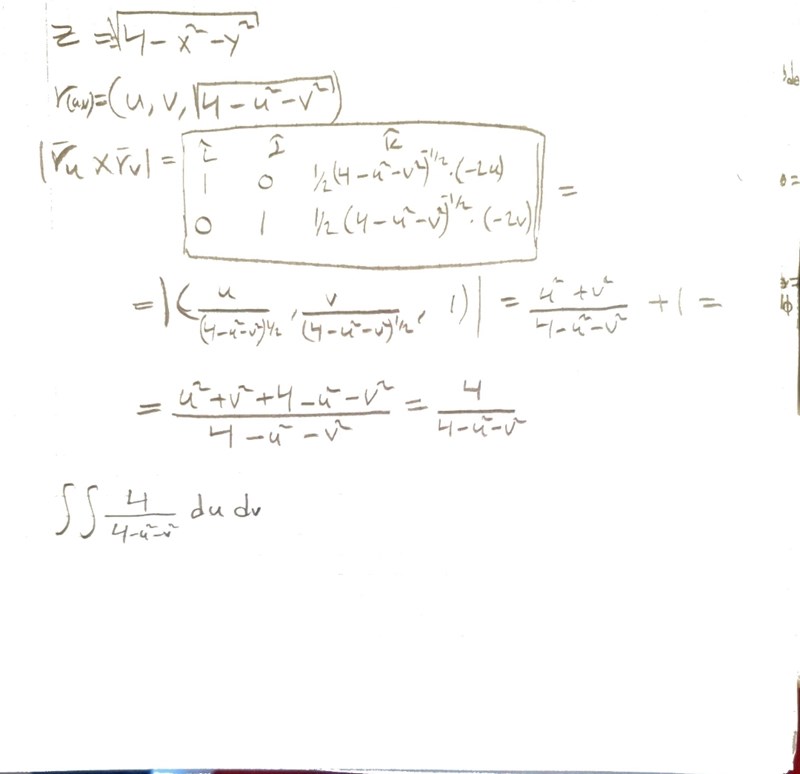 z = √(4 - x² - y²)
r(u,v) = (u, v, √(4 - u² - v²))
|r̄u × r̄v| = | î ĵ k̂ |
1 0 1/2 (4 - u² - v²)^(-1/2) · (-2u)
0 1 1/2 (4 - u² - v²)^(-1/2) · (-2v) | =
= |( u/(4-u²-v²)^(1/2) , v/(4-u²-v²)^(1/2) , 1 )| = (u² + v²)/(4-u²-v²) + 1 =
= (u² + v² + 4 - u² - v²)/(4 - u² - v²) = 4/(4-u²-v²)
∫∫ 4/(4-u²-v²) du dv